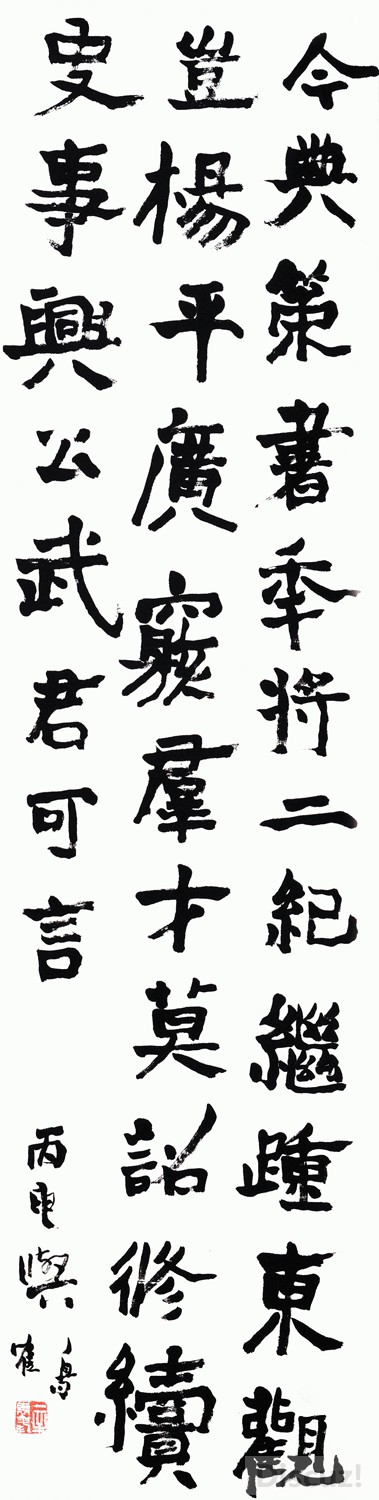 今典策書年將二紀繼踵東觀
豈楊平廣羣才莫詔修續
史事興公武君可言
丙申
Discuz!